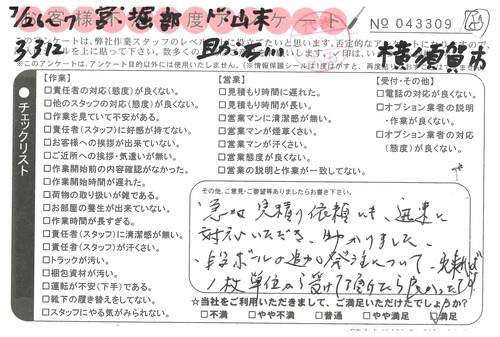 お客様満足度アンケート
№ 043309
このアンケートは、弊社作業スタッフのレベル
に役立てたいと思います。否定的な
※このアンケートは、アンケート目的以外には使用いたしません。(情報保護シール
横須賀市
チェックリスト
【作業】
□責任者の対応(態度)が良くない。
□他のスタッフの対応(態度)が良くない。
□作業を見ていて不安がある。
□責任者(スタッフ)に好感が持てない。
□お客様への挨拶が出来ていない。
□ご近所への挨拶・気遣いが無い。
□作業開始前の内容確認がなかった。
□作業開始時間が遅れた。
□荷物の取り扱いが雑である。
□お部屋の養生が出来ていない。
□作業時間が長すぎる。
□責任者(スタッフ)に清潔感が無い。
□責任者(スタッフ)が汗くさい。
□トラックが汚い。
□梱包資材が汚い。
□運転が不安(下手)である。
□靴下の履き替えをしてない。
□スタッフにやる気がみられない。
【営業】
□見積もり時間に遅れた。
□見積もり時間が長い。
□営業マンに清潔感が無い。
□営業マンが煙草くさい。
□営業マンが汗くさい。
□営業態度が良くない。
□営業の説明と作業が一致してない。
【受付・その他】
□電話の対応が良くない。
□オプション業者の説明
・作業が良くない。
□オプション業者の対応
(態度)が良くない。
その他、ご意見・ご要望等ありましたらお書き下さい。
急な見積り依頼にも、迅速に
対応いただき、助かりました。
段ボールの追加発注について、出来れば
1枚単位から受けて頂けたら良かったです。
☆当社をご利用いただきまして、ご満足いただけたでしょうか?
□不満 □やや不満 □普通 □やや満足 □満足